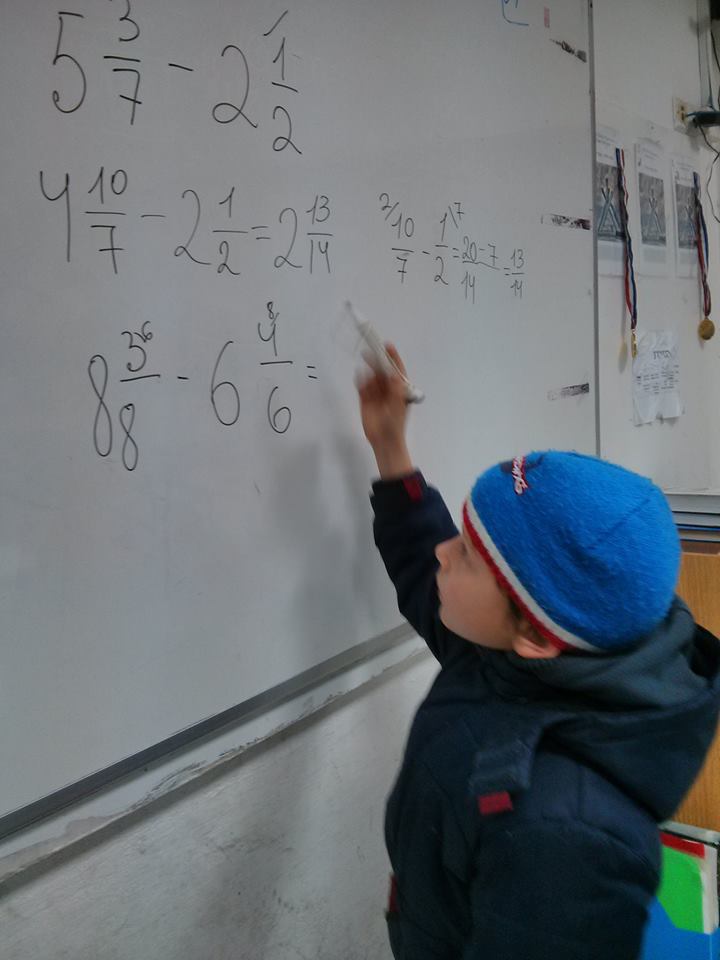 5 3/7 - 2 1/2
4 10/7 - 2 1/2 = 2 13/14
2/ 10/7 - 1/2 \7 = 20-7/14 = 13/14
8 3/8 6 - 6 4/6 8 =